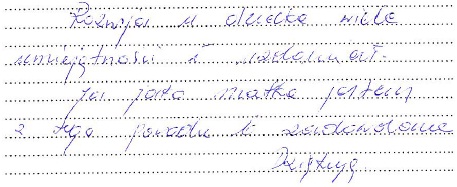 Rozwija u dziecka wiele
umiejętności i
Ja jako matka jestem
z tego powodu b. zadowolona
Dziękuję